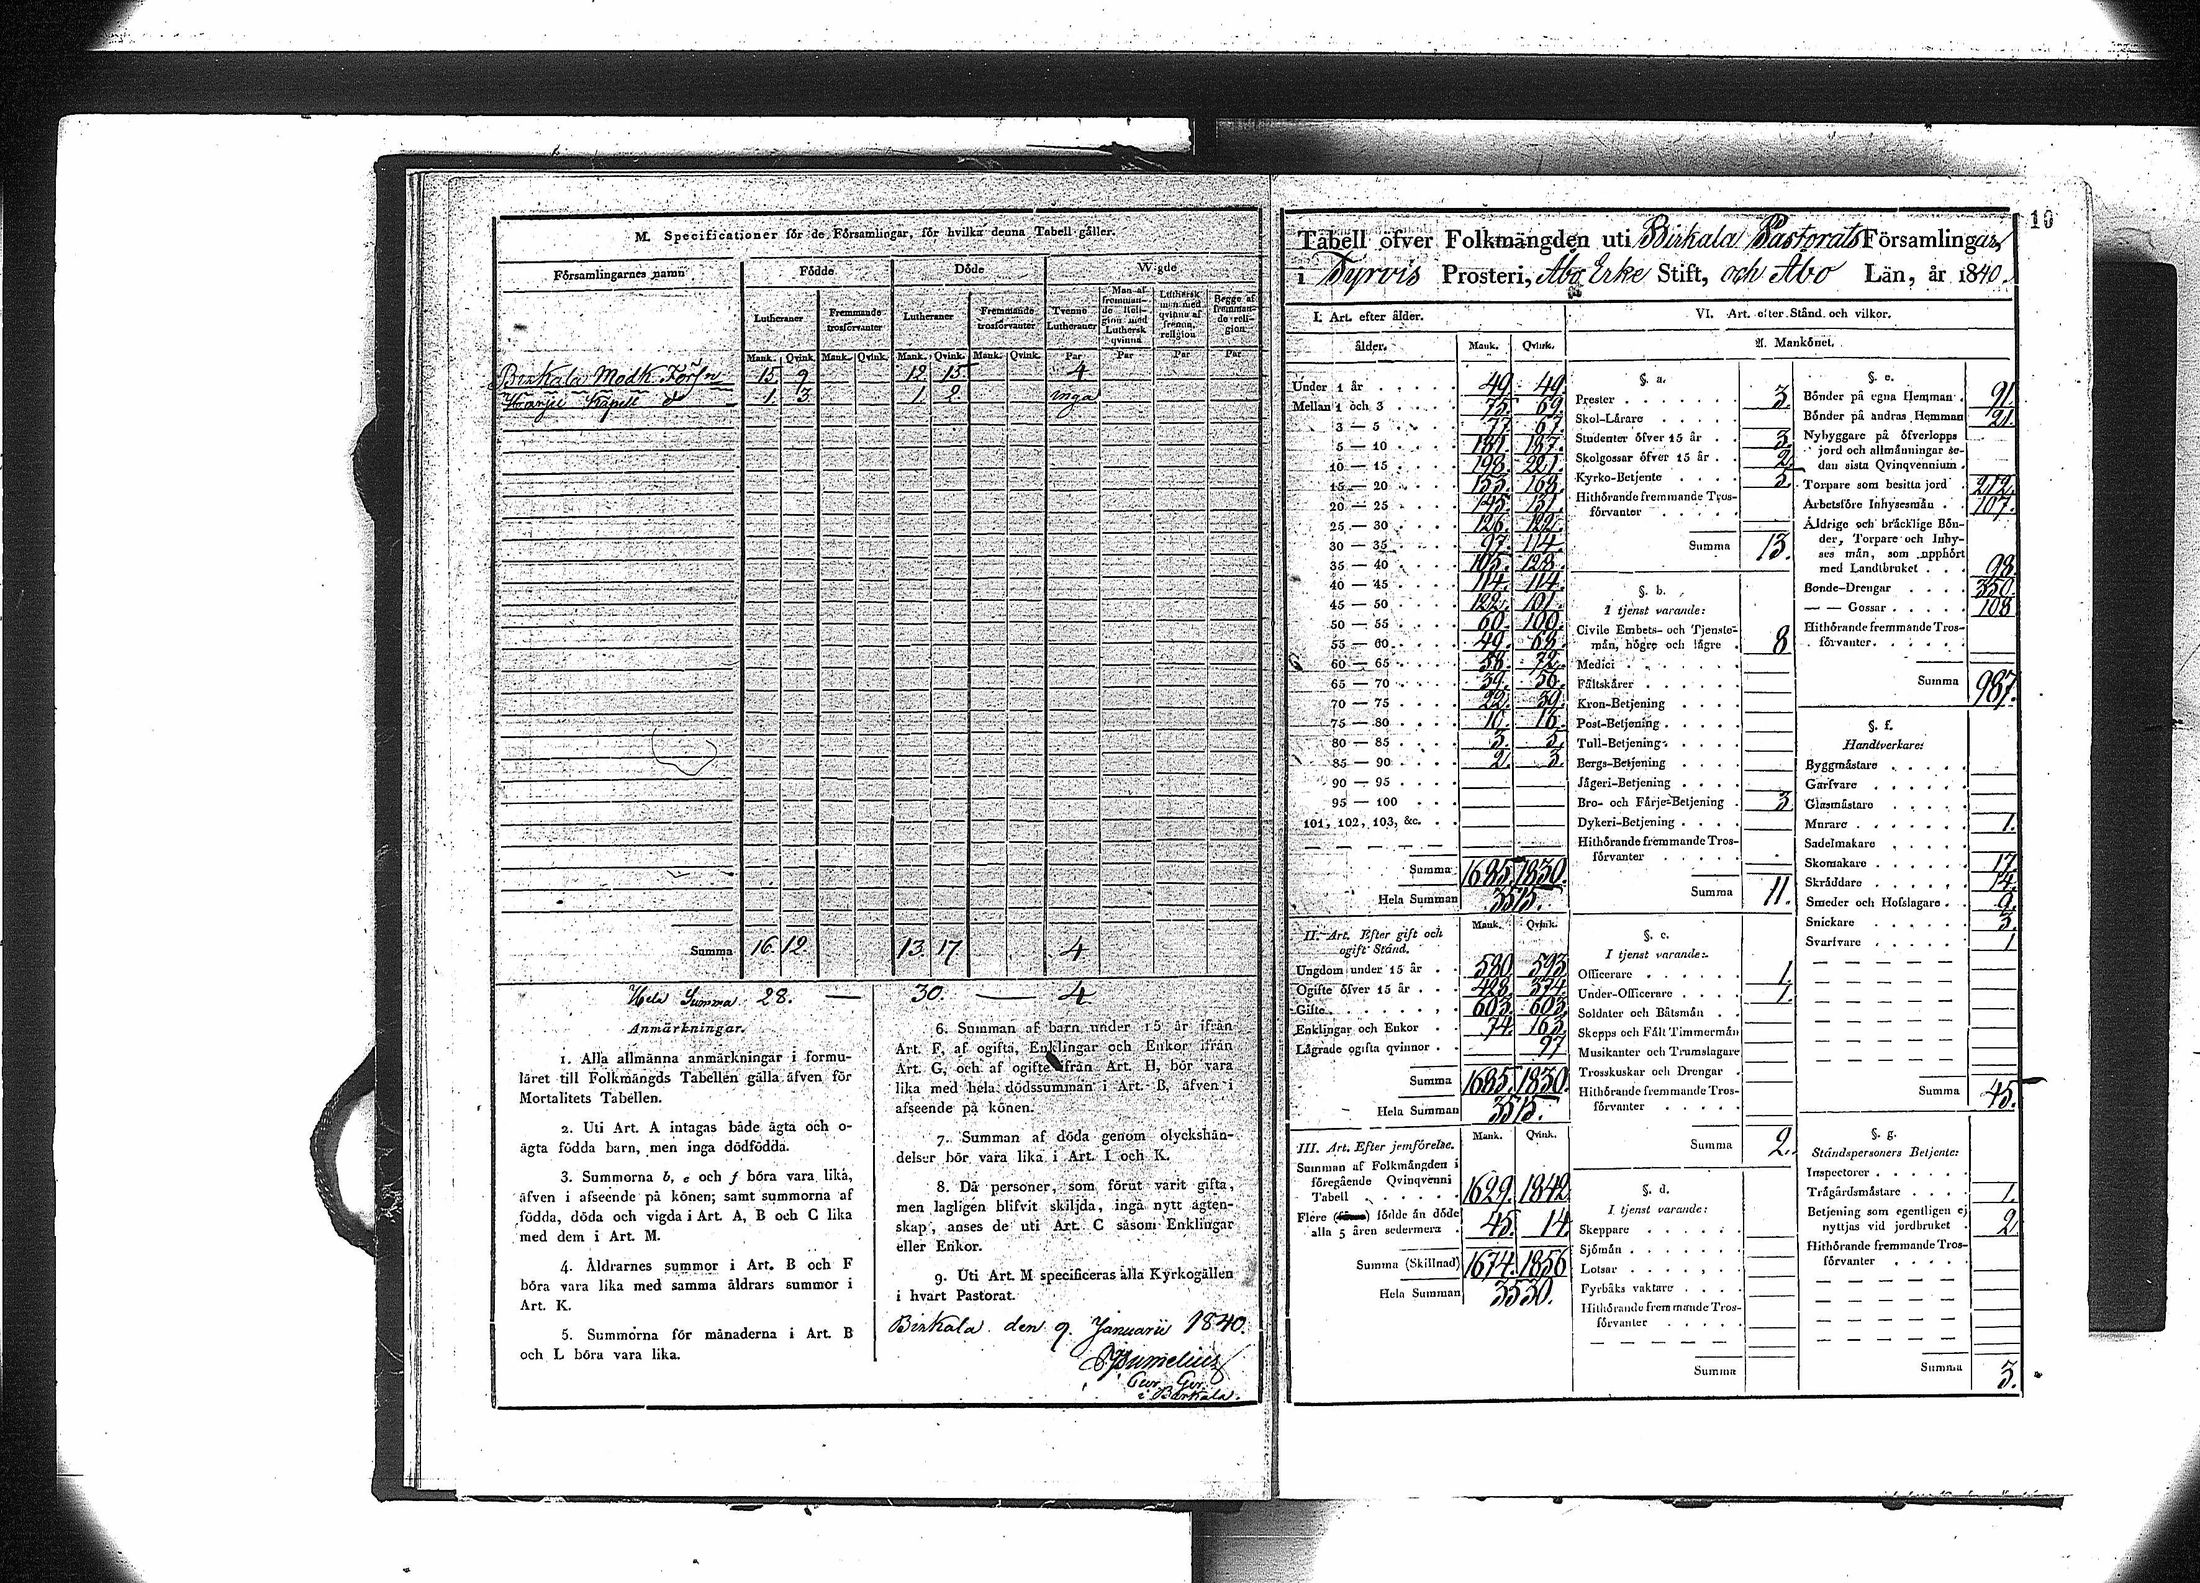 M. Specificationer för de Församlingar, för hvilka denna Tabell gäller.
Församlingarnes namn
Födde
Döde
Vigde
Lutheraner
Fremmande trosförvanter
Lutheraner
Fremmande trosförvanter
Tvenne Lutheraner
Man af fremmande Religion med Luthersk qvinna
Luthersk man med qvinna af fremm. religion
Begge af fremmande religion
Mank. Qvink. Mank. Qvink. Mank. Qvink. Mank. Qvink. Par Par Par Par
Birkala Modk. Förs:n 15. 9 12 15 4
Harju Kapell d:o 1. 3 1. 2. inga
Summa 16. 12. 13. 17 4
Hela Summa 28. — 30. — 4
Anmärkningar.
1. Alla allmänna anmärkningar i formu-
läret till Folkmängds Tabellen gälla äfven för
Mortalitets Tabellen.
2. Uti Art. A intagas både ägta och o-
ägta födda barn, men inga dödfödda.
3. Summorna b, e och f böra vara lika,
äfven i afseende på könen; samt summorna af
födda, döda och vigda i Art. A, B och C lika
med dem i Art. M.
4. Åldrarnes summor i Art. B och F
böra vara lika med samma åldrars summor i
Art. K.
5. Summorna för månaderna i Art. B
och L böra vara lika.
6. Summan af barn under 15 år ifrån
Art. F, af ogifta, Enklingar och Enkor ifrån
Art. G, och af ogifte ifrån Art. H, bör vara
lika med hela dödssumman i Art. B, äfven i
afseende på könen.
7. Summan af döda genom olyckshän-
delser bör vara lika i Art. I och K.
8. Då personer, som förut varit gifta,
men lagligen blifvit skiljda, ingå nytt ägten-
skap, anses de uti Art. C såsom Enklingar
eller Enkor.
9. Uti Art. M specificeras alla Kyrkogällen
i hvart Pastorat.
Birkala den 9. Januarii 1840.
i Birkala.
10
Tabell öfver Folkmängden uti Birkala Pastorats Församlingar
i Tyrvis Prosteri, Åbo Erke Stift, och Åbo Län, år 1840.
I. Art. efter ålder.
ålder. Mank. Qvink.
Under 1 år 49. 49.
Mellan 1 och 3 75. 69.
3 — 5 77. 67.
5 — 10 181. 187.
10 — 15 198. 221.
15 — 20 155. 168.
20 — 25 145. 131.
25 — 30 126. 122.
30 — 35 97. 114.
35 — 40 105. 128.
40 — 45 114. 114.
45 — 50 122. 101.
50 — 55 60. 100.
55 — 60 49. 68.
60 — 65 58. 72.
65 — 70 39. 56.
70 — 75 22. 39.
75 — 80 10. 16.
80 — 85 3. 5.
85 — 90 2. 3.
90 — 95
95 — 100
101, 102, 103, &c.
Summa 1685. 1830.
Hela Summan 3515.
II. Art. Efter gift och ogift Stånd. Mank. Qvink.
Ungdom under 15 år 580. 593.
Ogifte öfver 15 år 428. 374.
Gifte 603. 603.
Enklingar och Enkor 74. 163.
Lägrade ogifta qvinnor 97.
Summa 1685. 1830.
Hela Summan 3515.
III. Art. Efter jemförelse. Mank. Qvink.
Summan af Folkmängden i
föregående Qvinqvenni
Tabell 1629. 1842.
Flere födde än döde
alla 5 åren sedermera 45. 14.
Summa (Skillnad) 1674. 1856
Hela Summan 3530.
VI. Art. efter Stånd och vilkor.
A. Mankönet.
§. a.
Prester 3.
Skol-Lärare
Studenter öfver 15 år 3.
Skolgossar öfver 15 år 2.
Kyrko-Betjente 5.
Hithörande fremmande Tros-
förvanter
Summa 13.
§. b.
I tjenst varande:
Civile Embets- och Tjenste-
män, högre och lägre 8
Medici
Fältskärer
Kron-Betjening
Post-Betjening
Tull-Betjening
Bergs-Betjening
Jägeri-Betjening
Bro- och Färje-Betjening 3
Dykeri-Betjening
Hithörande fremmande Tros-
förvanter
Summa 11.
§. c.
I tjenst varande:
Officerare 1.
Under-Officerare 1.
Soldater och Båtsmän
Skepps och Fält Timmermän
Musikanter och Trumslagare
Trosskuskar och Drengar
Hithörande fremmande Tros-
förvanter
Summa 2.
§. d.
I tjenst varande:
Skeppare
Sjömän
Lotsar
Fyrbåks vaktare
Hithörande fremmande Tros-
förvanter
Summa
§. e.
Bönder på egna Hemman 91.
Bönder på andras Hemman 21.
Nybyggare på öfverlopps
jord och allmänningar se-
dan sista Qvinqvennium
Torpare som besitta jord 212.
Arbetsföre Inhysesmän 107.
Äldrige och bräcklige Bön-
der, Torpare och Inhy-
ses män, som upphört
med Landtbruket 98.
Bonde-Drengar 350.
— — Gossar 108
Hithörande fremmande Tros-
förvanter
Summa 987.
§. f.
Handtverkare:
Byggmästare
Garfvare
Glasmästare
Murare 1.
Sadelmakare
Skomakare 17.
Skräddare 14.
Smeder och Hofslagare 9.
Snickare 3.
Svarfvare 1
Summa 45.
§. g.
Ståndspersoners Betjente:
Inspectorer
Trägårdsmästare 1.
Betjening som egentligen ej
nyttjas vid jordbruket 2.
Hithörande fremmande Tros-
förvanter
Summa 3.